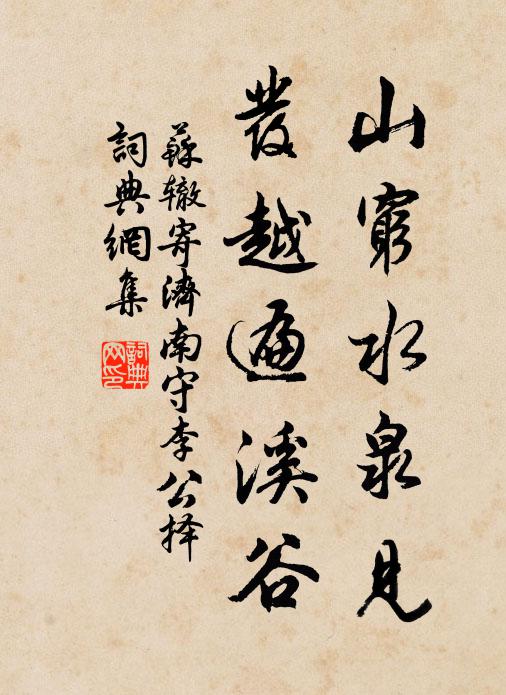 山窮水泉見
發越遍溪谷
蘇辙寄濟南守李公择
詞典網集
詞典网印